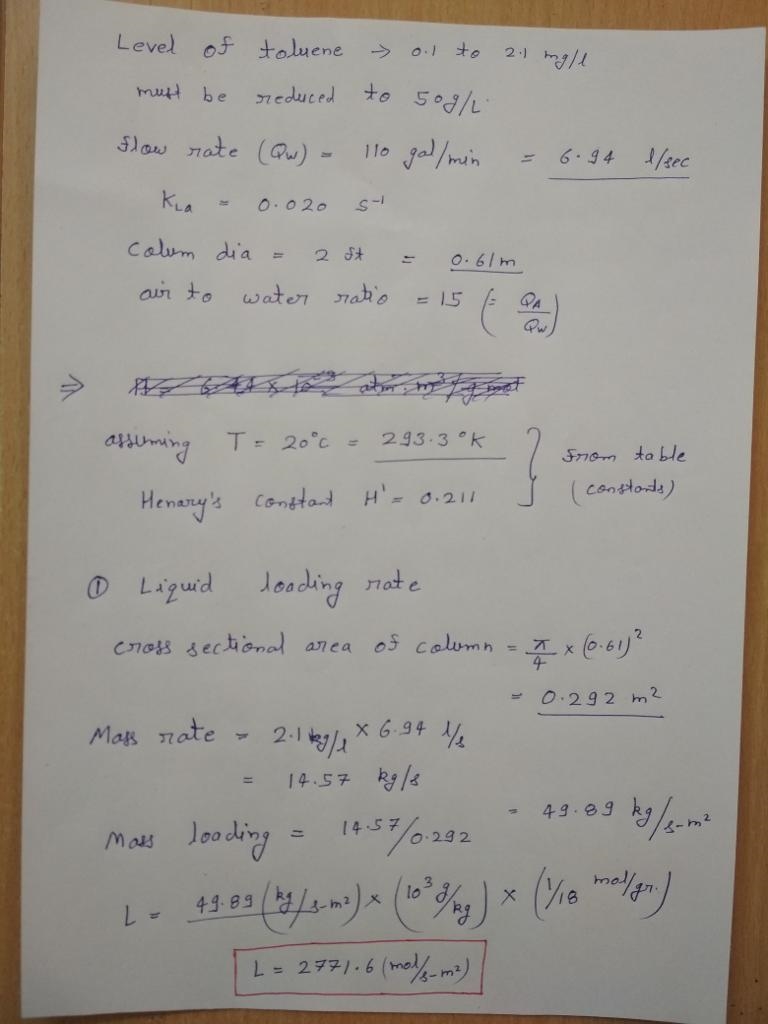 Level of toluene → 0.1 to 2.1 mg/l
must be reduced to 50g/L.
flow rate (Qw) = 110 gal/min = 6.94 l/sec
KLa = 0.020 s-1
Colum dia = 2 ft = 0.61m
air to water ratio = 15 (= QA/Qw)
⇒
assuming T = 20°C = 293.3 °K } from table
Henary's constant H' = 0.211 (constants)
① Liquid loading rate
cross sectional area of column = π/4 × (0.61)²
= 0.292 m²
Mass rate = 2.1 kg/l × 6.94 l/s
= 14.57 kg/s
Mass loading = 14.57/0.292 = 49.89 kg/s-m²
L = 49.89 (kg/s-m²) × (10³ g/kg) × (1/18 mol/gr.)
L = 2771.6 (mol/s-m²)